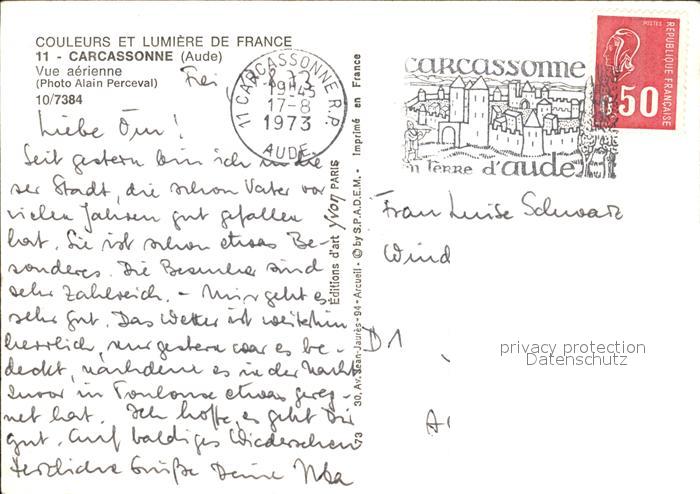 COULEURS ET LUMIÈRE DE FRANCE
11 - CARCASSONNE (Aude)
Vue aérienne
(Photo Alain Perceval)
10/7384
Frei
Liebe Omi!
Seit gestern bin ich in die-
ser Stadt, die schon Vater vor
vielen Jahren gut gefallen
hat. Sie ist schon etwas Be-
sonderes. Die Besucher sind
sehr zahlreich. - Mir geht es
sehr gut. Das Wetter ist weiterhin
herrlich, nur gestern war es be-
deckt, nachdem es in der Nacht
zuvor in Toulouse etwas gereg-
net hat. Ich hoffe, es geht Dir
gut. Auf baldiges Wiedersehen
Herzliche Grüße Deine
Éditions d'art yvon PARIS
30, Av. Jean-Jaurès - 94 - Arcueil - © by S.P.A.D.E.M. - Imprimé en France
73
11 CARCASSONNE R.P.
19H45
17-8
1973
AUDE
carcassonne
en terre d'aude
POSTES
RÉPUBLIQUE FRANÇAISE
0,50
Frau Luise Schwarz
Wind
D1
privacy protection
Datenschutz